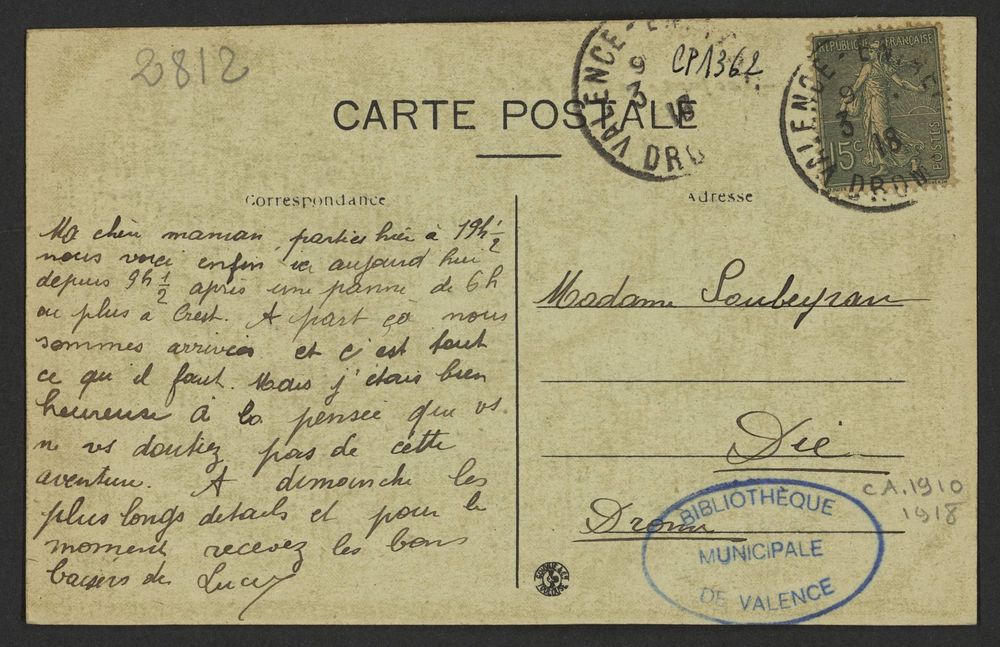 2812
CP1362
CARTE POSTALE
VALENCE
9
3
18
DRO
REPUBLIQUE FRANÇAISE
15c
POSTES
VALENCE
9
3
18
DROM
Correspondance
Adresse
Ma chère maman, parties hier à 19h 1/2
nous voici enfin ici aujourd'hui
depuis 9h 1/2 après une panne de 6h
ou plus à Crest. A part ça nous
sommes arrivées et c'est tout
ce qu'il faut. Mais j'étais bien
heureuse à la pensée que vs
ne vs doutiez pas de cette
aventure. A dimanche les
plus longs details et pour le
moment recevez les bons
baisers de Lucy
Madame Soubeyran
Die
Drome
CA.1910
1918
BIBLIOTHÈQUE
MUNICIPALE
DE VALENCE